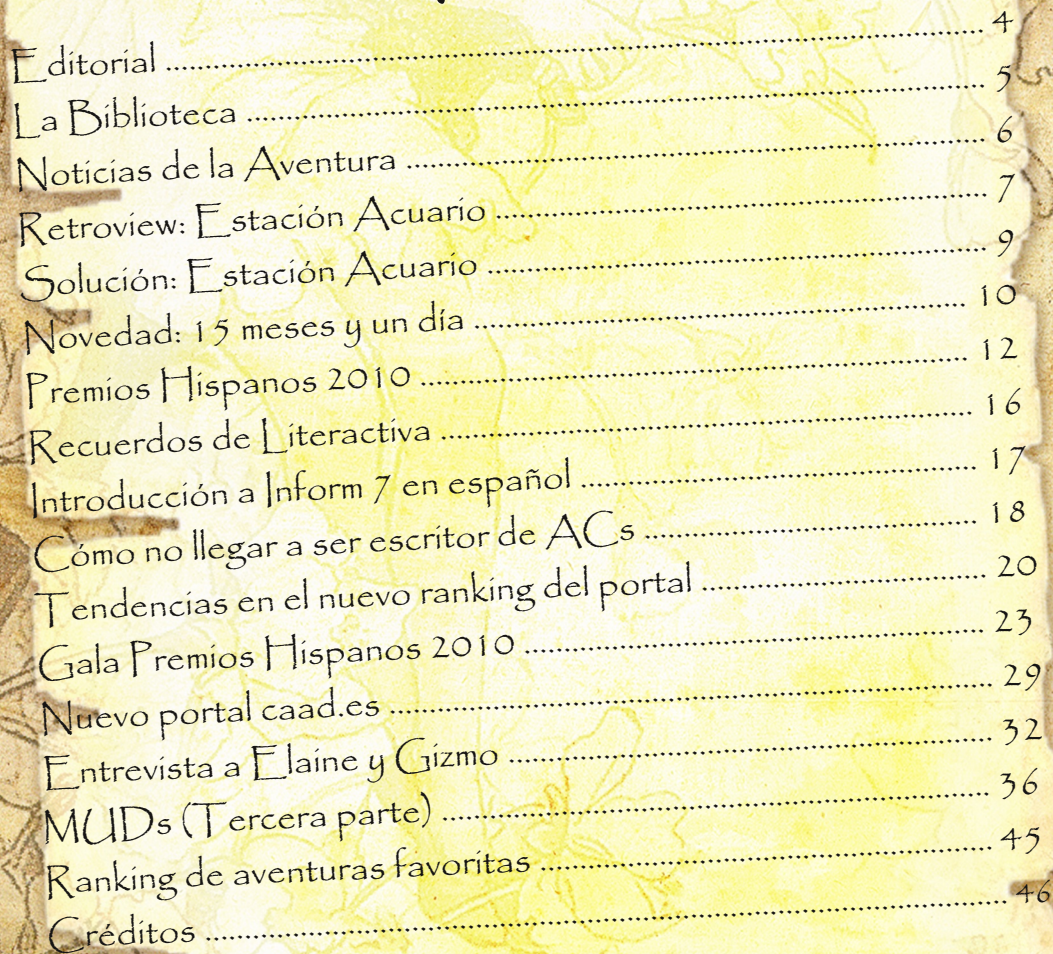 Editorial ........ 4
La Biblioteca ........ 5
Noticias de la Aventura ........ 6
Retroview: Estación Acuario ........ 7
Solución: Estación Acuario ........ 9
Novedad: 15 meses y un día ........ 10
Premios Hispanos 2010 ........ 12
Recuerdos de Literactiva ........ 16
Introducción a Inform 7 en español ........ 17
Cómo no llegar a ser escritor de ACs ........ 18
Tendencias en el nuevo ranking del portal ........ 20
Gala Premios Hispanos 2010 ........ 23
Nuevo portal caad.es ........ 29
Entrevista a Elaine y Gizmo ........ 32
MUDs (Tercera parte) ........ 36
Ranking de aventuras favoritas ........ 45
Créditos ........ 46